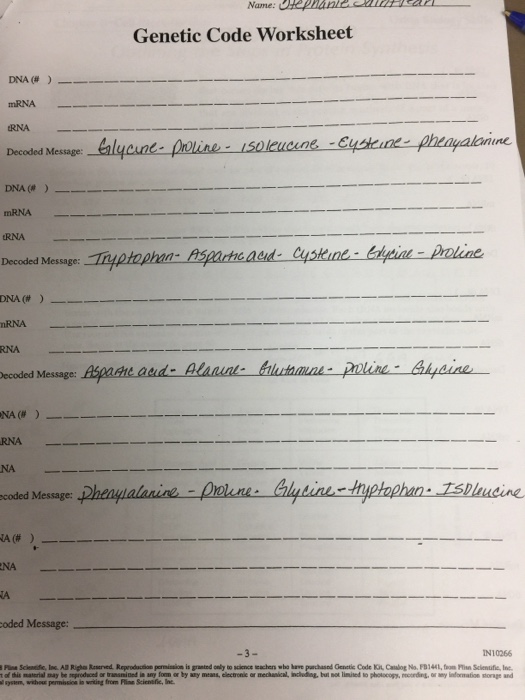 Name: Stephanie
Genetic Code Worksheet
DNA (# )
mRNA
tRNA
Decoded Message: Glycine - Proline - isoleucine - Cysteine - phenyalanine
DNA (# )
mRNA
tRNA
Decoded Message: Tryptophan - Aspartic acid - Cysteine - Glycine - Proline
DNA (# )
mRNA
RNA
Decoded Message: Aspartic acid - Alanine - Glutamine - proline - Glycine
NA (# )
RNA
NA
ecoded Message: phenylalanine - proline - Glycine - tryptophan - ISOleucine
NA (# )
RNA
NA
coded Message:
- 3 -
IN10266
Flinn Scientific, Inc. All Rights Reserved. Reproduction permission is granted only to science teachers who have purchased Genetic Code Kit, Catalog No. FB1441, from Flinn Scientific, Inc.
of this material may be reproduced or transmitted in any form or by any means, electronic or mechanical, including, but not limited to photocopy, recording, or any information storage and
system, without permission in writing from Flinn Scientific, Inc.